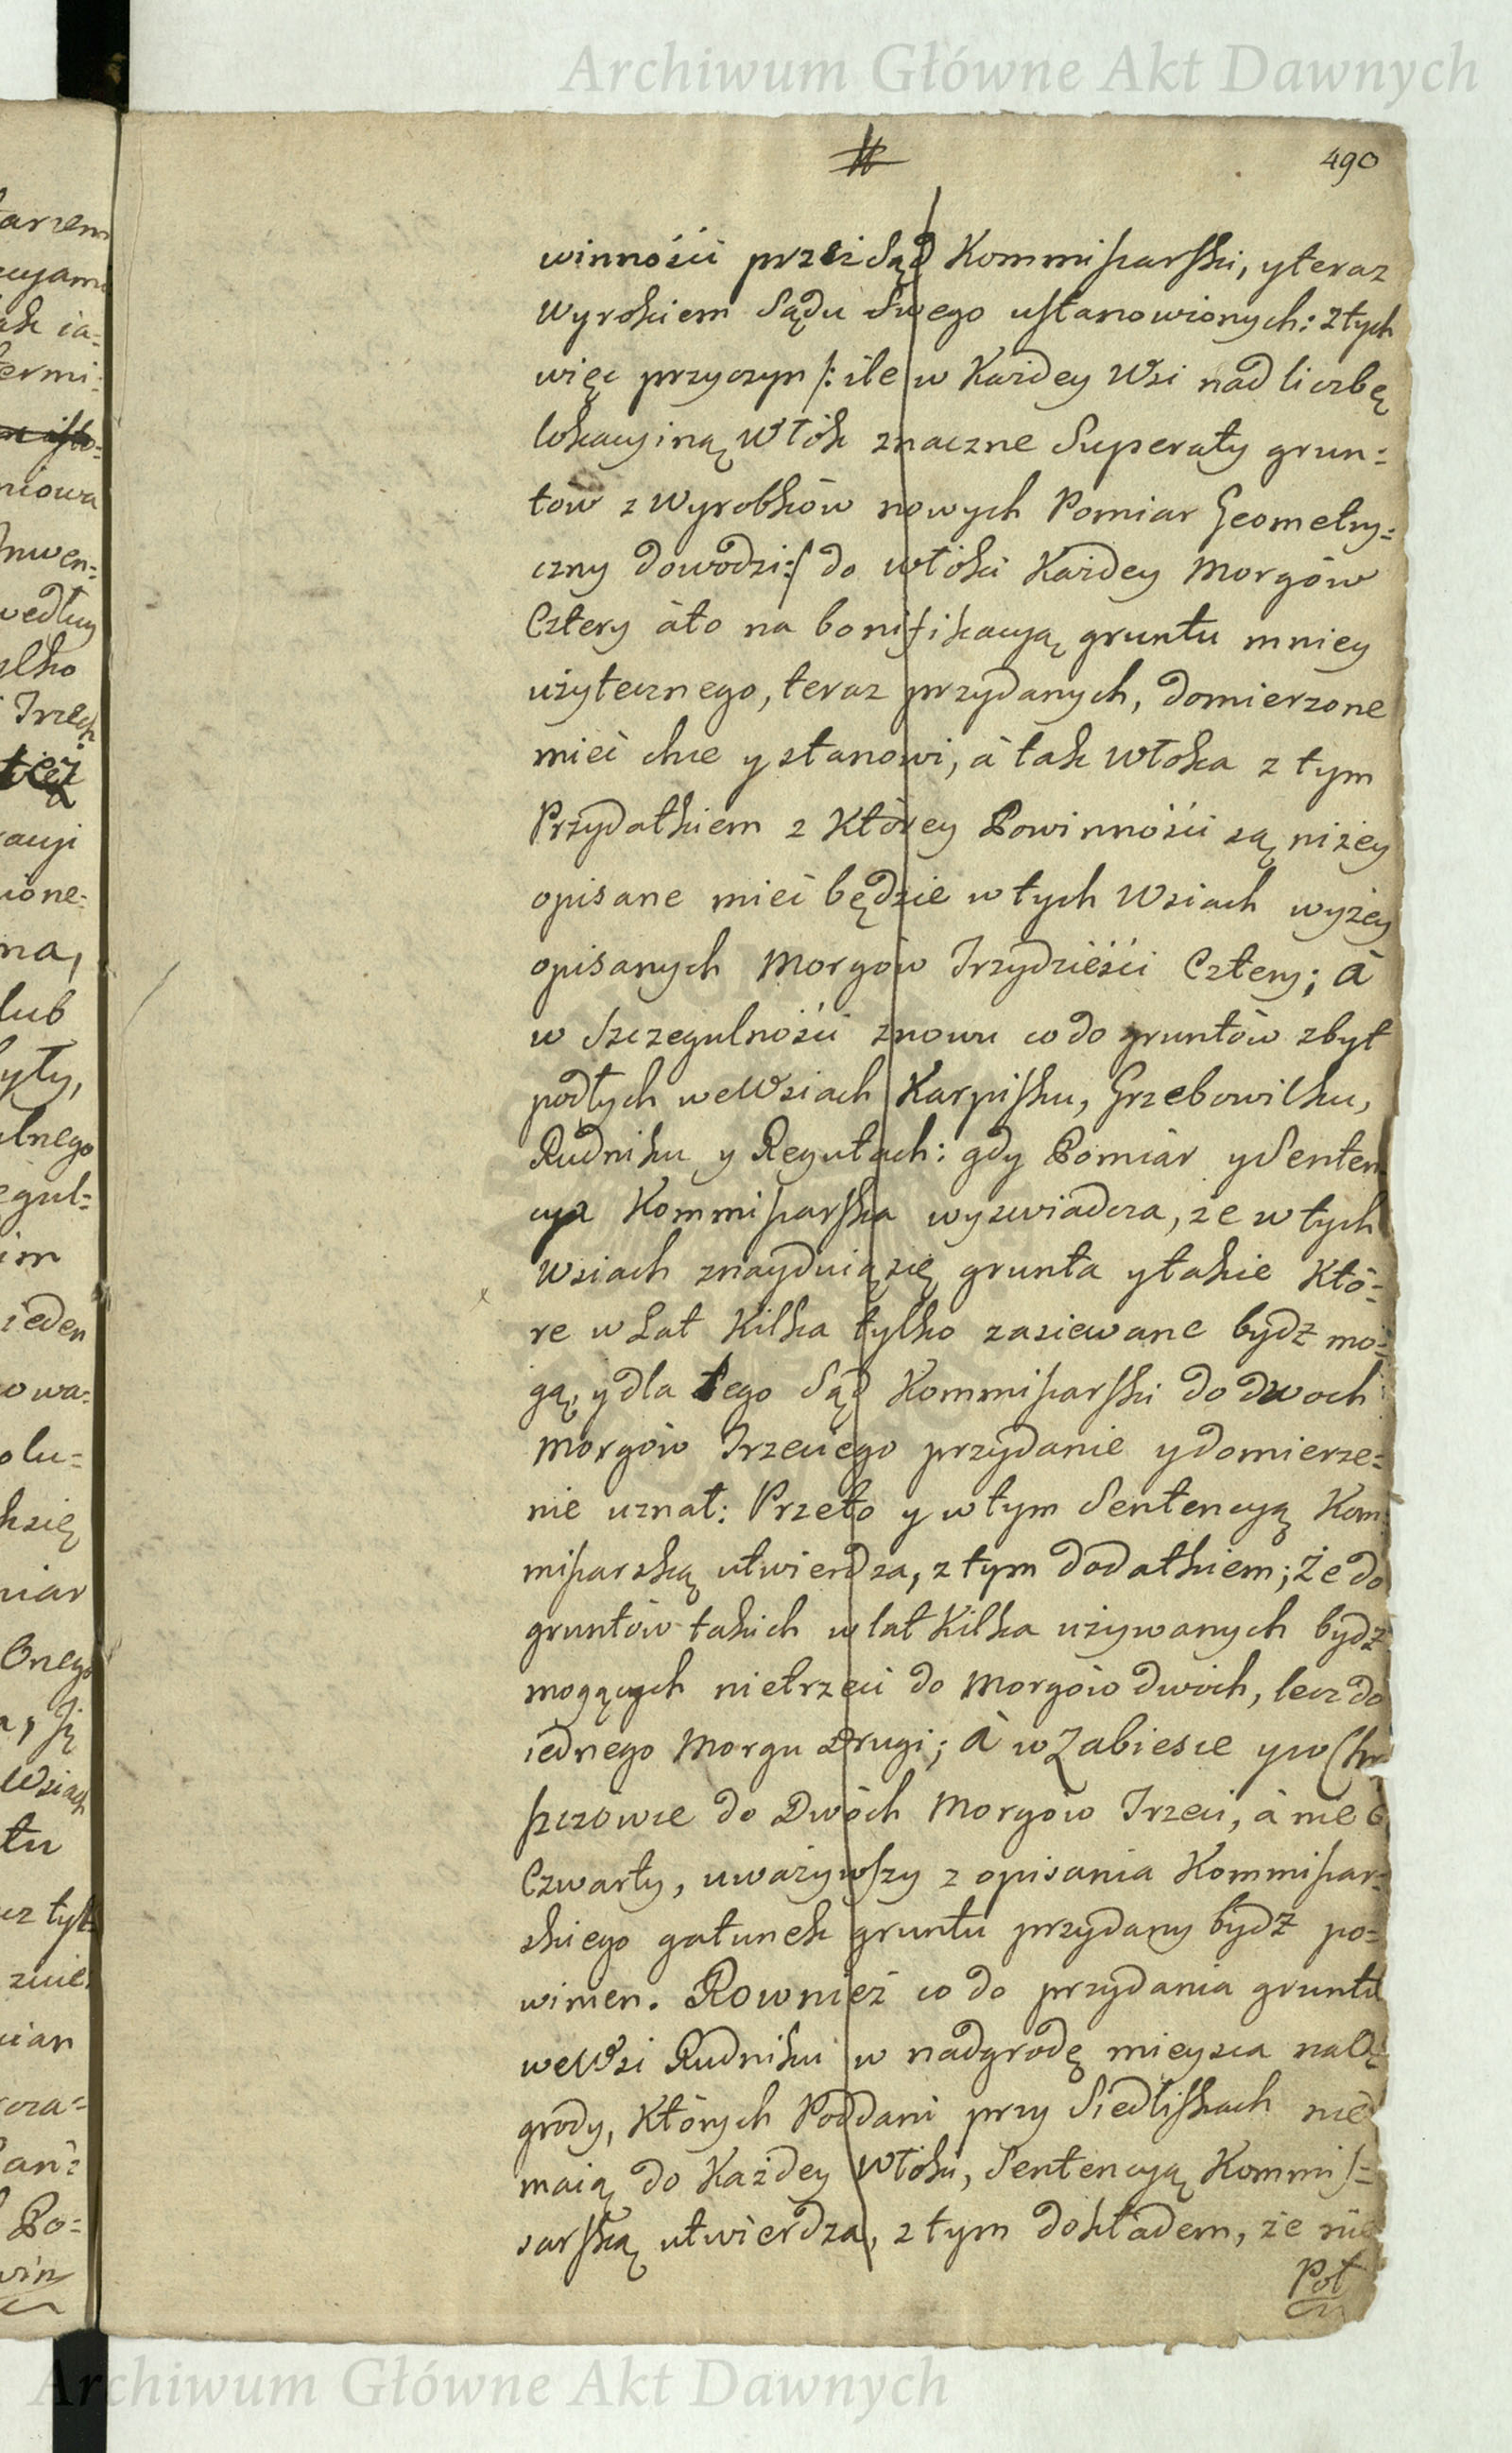 Archiwum Główne Akt Dawnych
490
winności przez Sąd Kommissarski, y teraz
Wyrokiem Sądu Swego ustanowionych: z tych
więc przyczyn /: ile w Każdey Wsi nad liczbę
lokacyiną Włók znaczne Superaty grun=
tów z Wyrobków nowych Pomiar Geometry=
czny dowodzi :/ do włóki Każdey Morgów
Cztery áto na bonifikacyą gruntu mniey
użytecznego, teraz przydanych, domierzone
mieć chce y stanowi, á tak Włoka z tym
Przydatkiem z Którey Powinności są niżey
opisane mieć będzie w tych Wsiach wyżey
opisanych Morgów Trzydzieści Cztery; á
w Szczegulności znowu co do gruntów zbyt
podłych we Wsiach Karpisku, Grzebowilku,
Rudniku y Regutach: gdy Pomiar y Senten
cya Kommissarska wyzwiadcza, że w tych
Wsiach znayduią się grunta y takie Któ=
re w Lat Kilka tylko zasiewane bydź mo=
gą, y dla tego Sąd Kommissarski do dwoch
Morgów Trzeciego przydanie y domierze=
nie uznał: Przeto y w tym Sentencyą Kom=
missarską utwierdza, z tym dodatkiem; Że do
gruntów takich w lat Kilka używanych bydź
mogących nie trzeci do Morgów dwóch, lecz do
iednego Morgu Drugi; á w Zabiesce y w Chr
szczówce do Dwóch Morgów Trzeci, á nie
Czwarty, uważywszy z opisania Kommissar=
skiego gatunek gruntu przydany bydź po=
winien. Rownież co do przydania gruntu
we Wsi Rudniku w nadgrodę mieysca na O
grody, Których Poddani przy Siedliskach nie
maią do Każdey Włóki, Sentencyą Kommis=
sarską utwierdza, z tym dokładem, że nie
Pół
Archiwum Główne Akt Dawnych